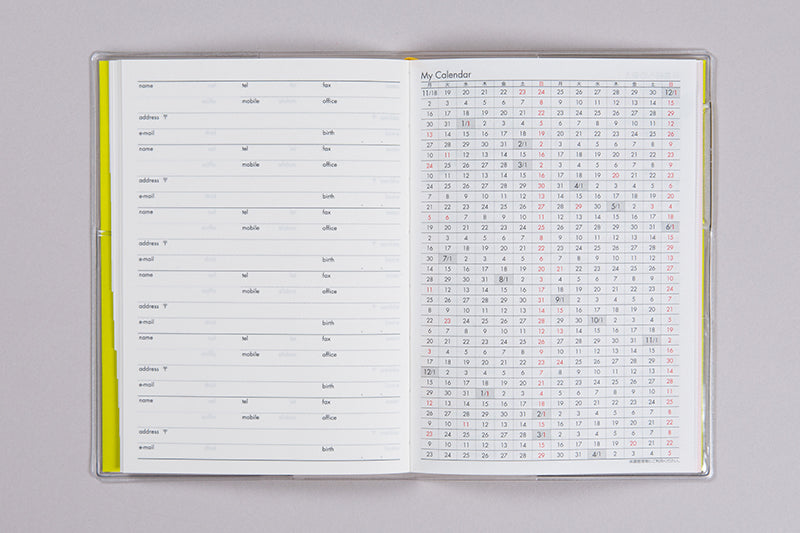 name tel fax
mobile office
address 〒
e-mail birth
name tel fax
mobile office
address 〒
e-mail birth
name tel fax
mobile office
address 〒
e-mail birth
name tel fax
mobile office
address 〒
e-mail birth
name tel fax
mobile office
address 〒
e-mail birth
name tel fax
mobile office
address 〒
e-mail birth
My Calendar
月 火 水 木 金 土 日 月 火 水 木 金 土 日
11/18 19 20 21 22 23 24 25 26 27 28 29 30 12/1
2 3 4 5 6 7 8 9 10 11 12 13 14 15
16 17 18 19 20 21 22 23 24 25 26 27 28 29
30 31 1/1 2 3 4 5 6 7 8 9 10 11 12
13 14 15 16 17 18 19 20 21 22 23 24 25 26
27 28 29 30 31 2/1 2 3 4 5 6 7 8 9
10 11 12 13 14 15 16 17 18 19 20 21 22 23
24 25 26 27 28 3/1 2 3 4 5 6 7 8 9
10 11 12 13 14 15 16 17 18 19 20 21 22 23
24 25 26 27 28 29 30 31 4/1 2 3 4 5 6
7 8 9 10 11 12 13 14 15 16 17 18 19 20
21 22 23 24 25 26 27 28 29 30 5/1 2 3 4
5 6 7 8 9 10 11 12 13 14 15 16 17 18
19 20 21 22 23 24 25 26 27 28 29 30 31 6/1
2 3 4 5 6 7 8 9 10 11 12 13 14 15
16 17 18 19 20 21 22 23 24 25 26 27 28 29
30 7/1 2 3 4 5 6 7 8 9 10 11 12 13
14 15 16 17 18 19 20 21 22 23 24 25 26 27
28 29 30 31 8/1 2 3 4 5 6 7 8 9 10
11 12 13 14 15 16 17 18 19 20 21 22 23 24
25 26 27 28 29 30 31 9/1 2 3 4 5 6 7
8 9 10 11 12 13 14 15 16 17 18 19 20 21
22 23 24 25 26 27 28 29 30 10/1 2 3 4 5
6 7 8 9 10 11 12 13 14 15 16 17 18 19
20 21 22 23 24 25 26 27 28 29 30 31 11/1 2
3 4 5 6 7 8 9 10 11 12 13 14 15 16
17 18 19 20 21 22 23 24 25 26 27 28 29 30
12/1 2 3 4 5 6 7 8 9 10 11 12 13 14
15 16 17 18 19 20 21 22 23 24 25 26 27 28
29 30 31 1/1 2 3 4 5 6 7 8 9 10 11
12 13 14 15 16 17 18 19 20 21 22 23 24 25
26 27 28 29 30 31 2/1 2 3 4 5 6 7 8
9 10 11 12 13 14 15 16 17 18 19 20 21 22
23 24 25 26 27 28 3/1 2 3 4 5 6 7 8
9 10 11 12 13 14 15 16 17 18 19 20 21 22
23 24 25 26 27 28 29 30 31 4/1 2 3 4 5